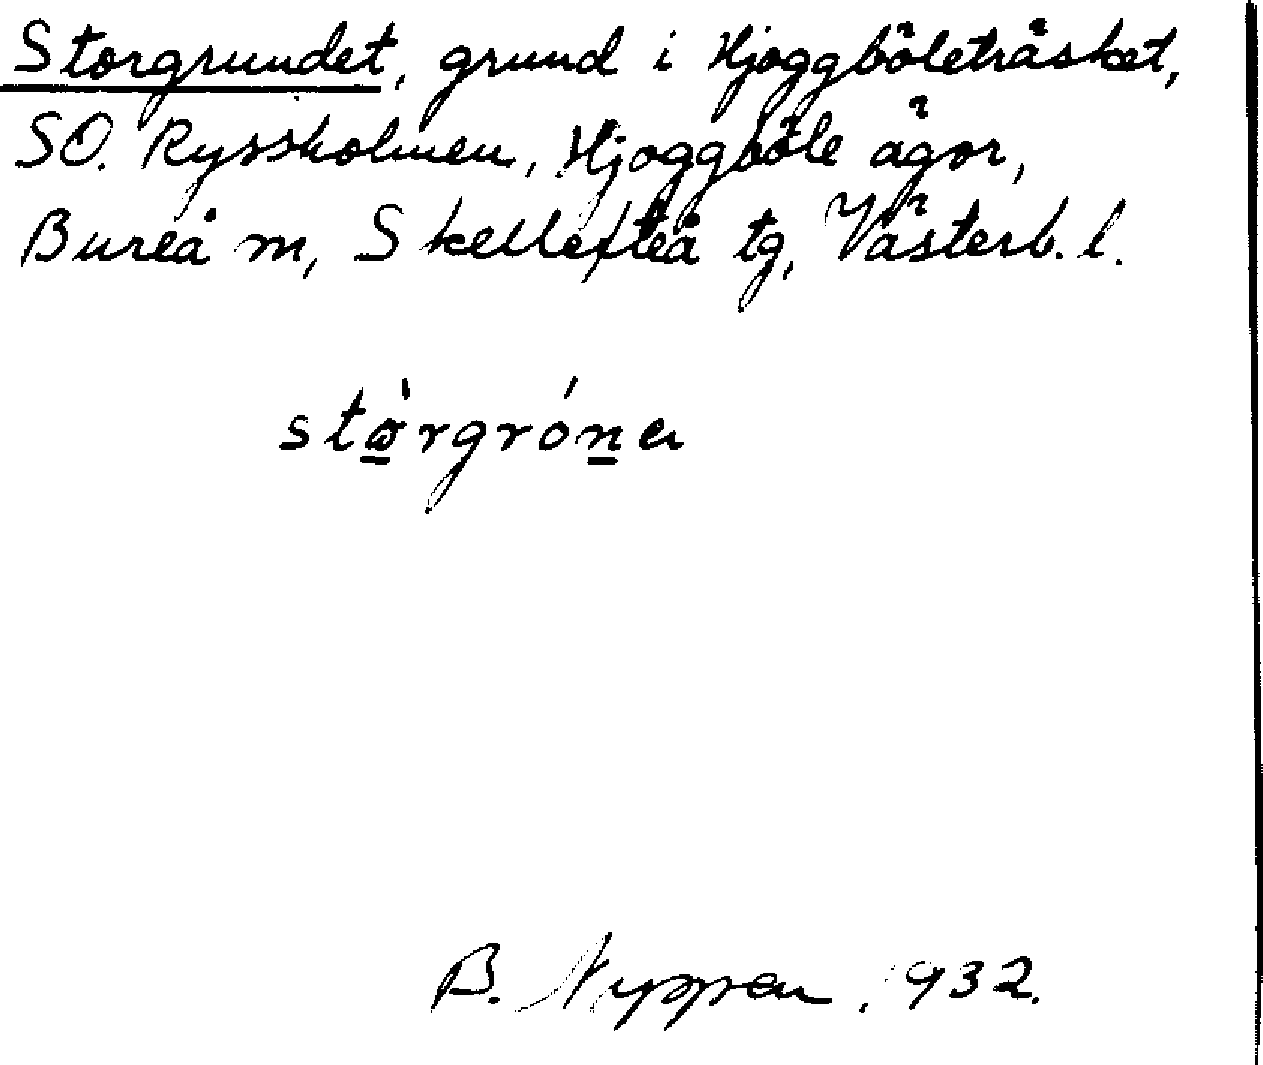 Storgrundet, grund i Hjoggböleträsket,
SO. Ryssholmen, Hjoggböle ägor,
Bureå m, Skellefteå tg, Västerb. l.
stø̱̀rgróṉa
B. Nyppen. 1932.